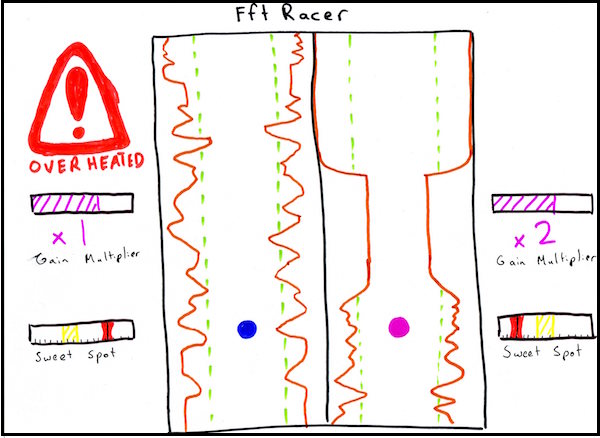 Fft Racer
OVER HEATED
x 1
Gain Multiplier
Sweet Spot
x 2
Gain Multiplier
Sweet Spot